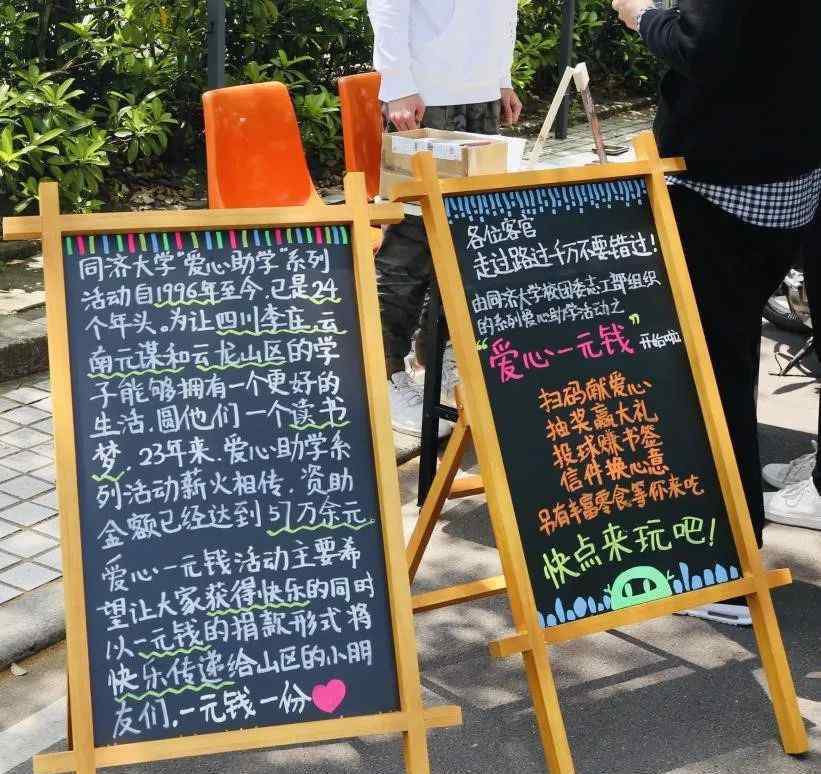 同济大学"爱心助学"系列
活动自1996年至今,已是24
个年头。为让四川李庄,云
南元谋和云龙山区的学
子能够拥有一个更好的
生活,圆他们一个读书
梦,23年来,爱心助学系
列活动薪火相传,资助
金额已经达到57万余元。
爱心一元钱活动主要希
望让大家获得快乐的同时
以一元钱的捐款形式将
快乐传递给山区的小朋
友们,一元钱一份
各位客官
走过路过千万不要错过!
由同济大学校团委志工部组织
的系列爱心助学活动之
"爱心一元钱"开始啦
扫码献爱心
抽奖赢大礼
投球赚书签
信件换心意
另有丰富零食等你来吃
快点来玩吧!